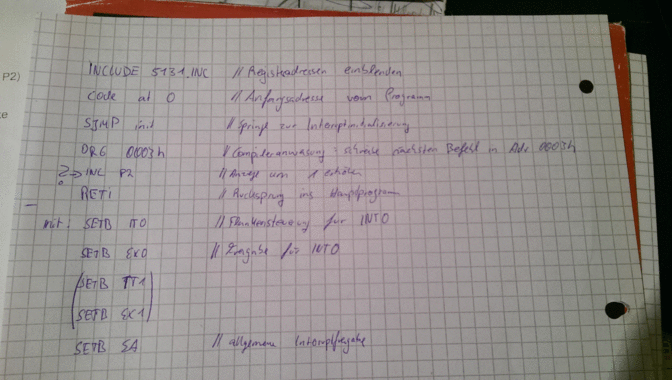 P2)
INCLUDE 5131.INC // Registeradressen einblenden
Code at 0 // Anfangsadresse vom Programm
SJMP init // Springt zur Interruptinitialisierung
ORG 0003h // Compileranweisung: schreibe nächsten Befehl in Adr. 0003h
?→ INC P2 // Anzeige um 1 erhöhen
RETI // Rücksprung ins Hauptprogramm
init: SETB IT0 // Flankensteuerung für INT0
SETB EX0 // Freigabe für INT0
(SETB IT1
SETB EX1)
SETB EA // allgemeine Interruptfreigabe